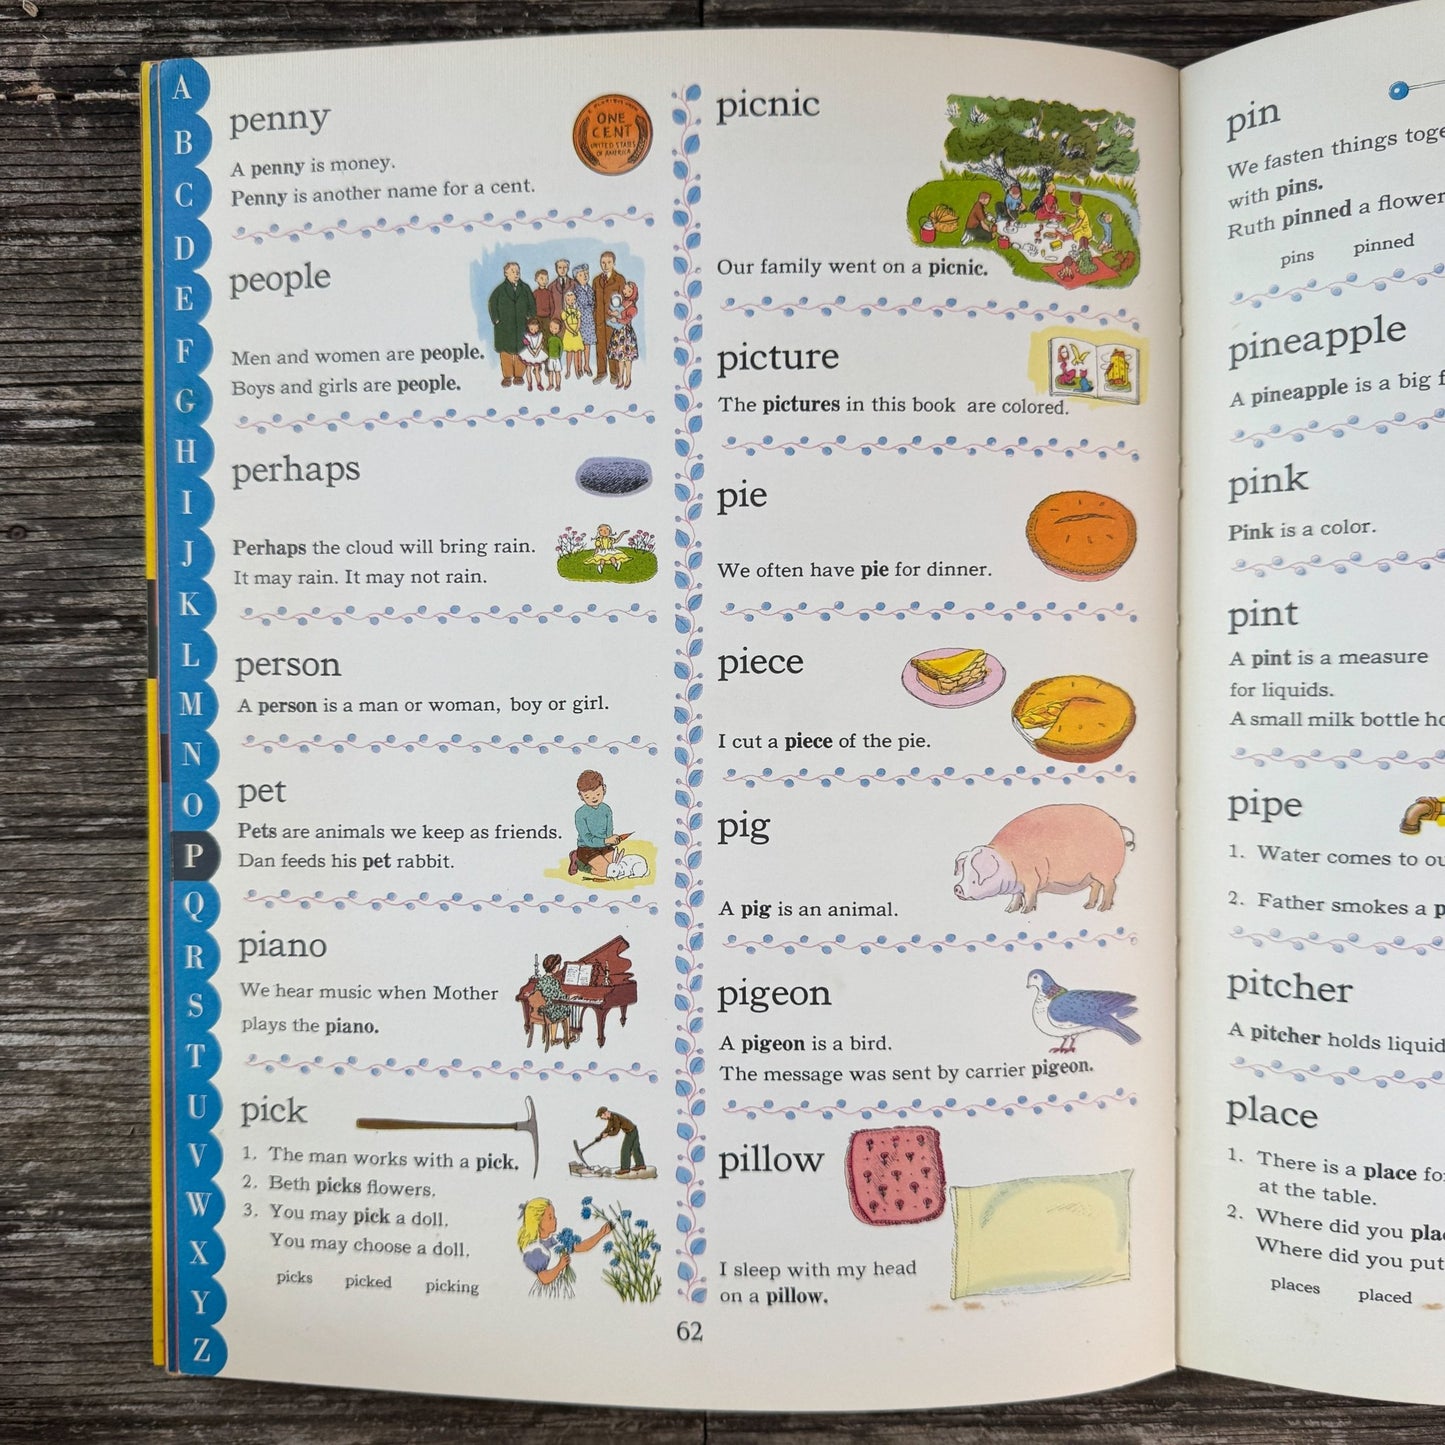 A
B
C
D
E
F
G
H
I
J
K
L
M
N
O
P
Q
R
S
T
U
V
W
X
Y
Z
penny
ONE
CENT
UNITED STATES
OF AMERICA
A penny is money.
Penny is another name for a cent.
people
Men and women are people.
Boys and girls are people.
perhaps
Perhaps the cloud will bring rain.
It may rain. It may not rain.
person
A person is a man or woman, boy or girl.
pet
Pets are animals we keep as friends.
Dan feeds his pet rabbit.
piano
We hear music when Mother
plays the piano.
pick
1. The man works with a pick.
2. Beth picks flowers.
3. You may pick a doll.
You may choose a doll.
picks picked picking
picnic
Our family went on a picnic.
picture
The pictures in this book are colored.
pie
We often have pie for dinner.
piece
I cut a piece of the pie.
pig
A pig is an animal.
pigeon
A pigeon is a bird.
The message was sent by carrier pigeon.
pillow
I sleep with my head
on a pillow.
62
pin
We fasten things
with pins.
Ruth pinned a flower
pins pinned
pineapple
A pineapple is a big
pink
Pink is a color.
pint
A pint is a measure
for liquids.
A small milk bottle
pipe
1. Water comes to
2. Father smokes a
pitcher
A pitcher holds
place
1. There is a place
at the table.
2. Where did you
Where did you put
places placed